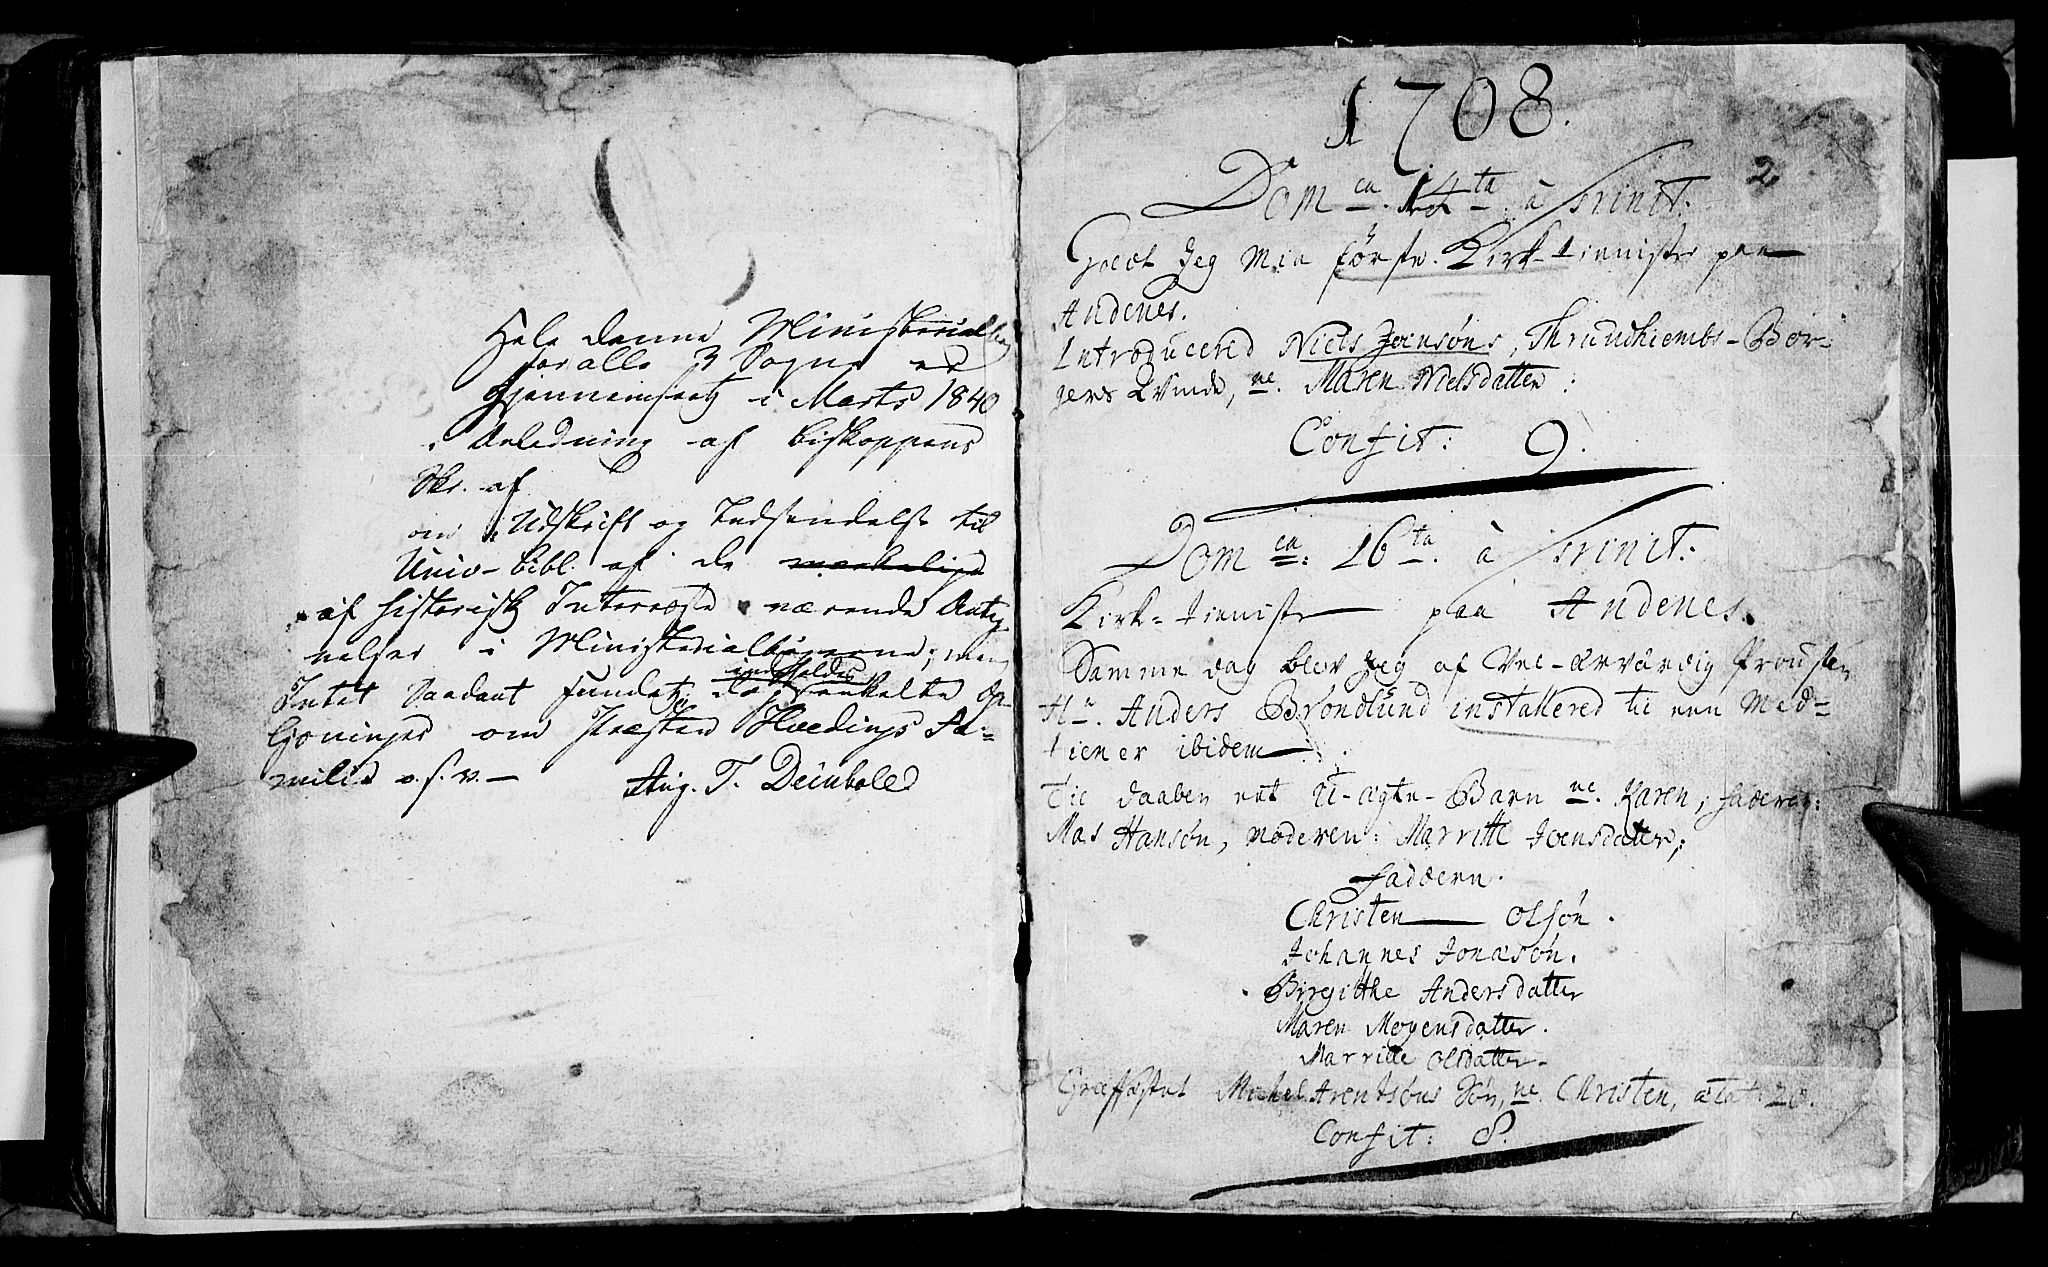 Hele denne Ministerialbog
for alle 3 Sogne er
gjennemseet i Marts 1840
i Anledning af Biskoppens
Skr. af
om Udskrift og Indsendelse til
Univ-bibl. af de mærkelige
af historisk Interesse værende Anteg
nelser i Ministerialbøgerne; men
Intet saadant fundet; indholdes
da enkelte Op-
om Præsten Hvedings Fa-
milie o.s.v.- Aug. T. Deinboll
1708.
2
Dom ca. 14ta. à Trinit:
Giort Jeg Min første Kirk-tienniste paa
Andenes.
Introducered Niels Jensøns, Thrundhiembs-Bor-
gers Qvinde, ne. Maren Nielsdatter:
Confit: 9.
Dom ca: 16ta. à Trinit:
Kirk-tienniste paa Andenes.
Samme dag blev Jeg af Vel-ærværdig Prousten
Hr. Anders Brøndlund installered til een Med-
tiener ibidem.
Til daaben eet U-ægte-Barn ne. Karen, faderen:
Mas Hansøn, moderen: Marritte Joensdatter;
Fadderne.
Christen Olsøn.
Johannes Jonasøn.
Birgitthe Andersdatter
Maren Mogensdatter.
Marritte Olsdatter.
Græffæstet Michel Arentsøns Søn, ne. Christen, ætat: 20.
Confit: 8.